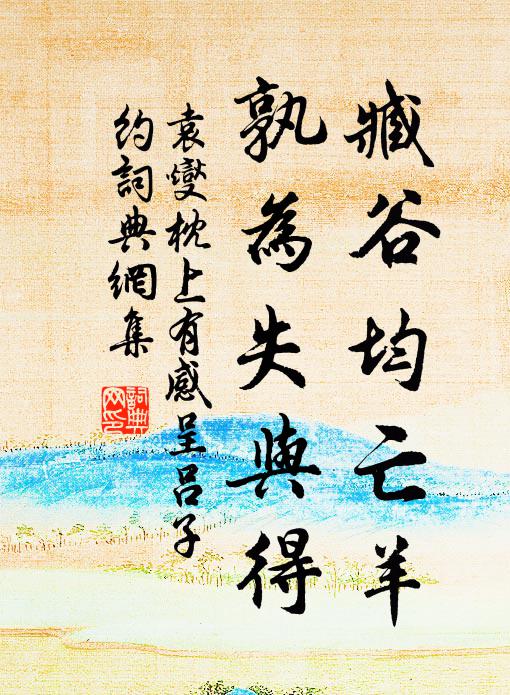 臧谷均亡羊
孰為失與得
袁燮枕上有感呈呂子
約詞典網集
詞典網印